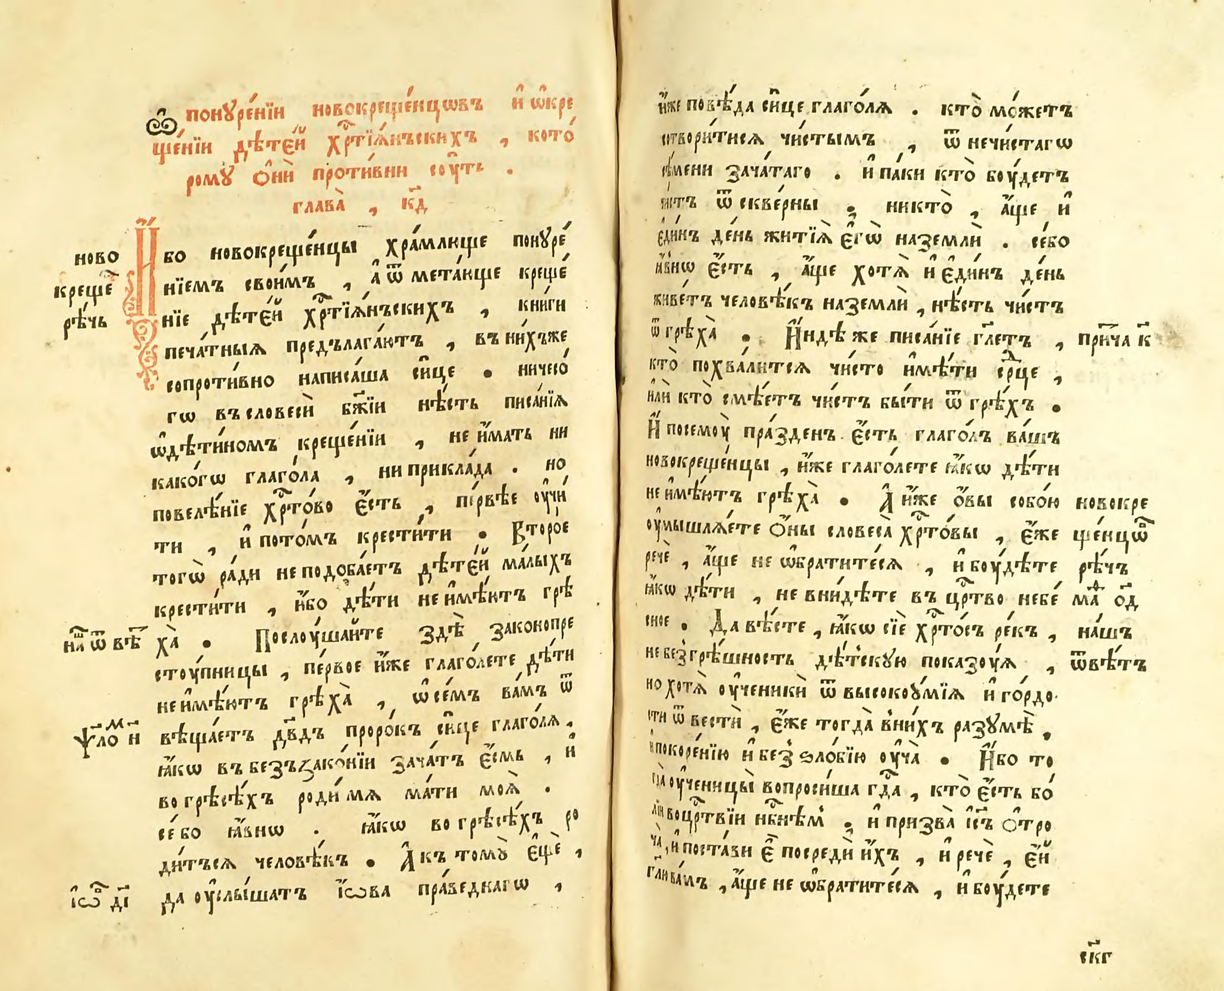 Ѡ понꙋре́нїи новокреще́нцѡвъ и҆ ѡ҆кре
ще́нїи дѣте́й хрⷭ҇тїѧ́нъскихъ , кото́
ромꙋ ѻ҆нѝ проти́вни сꙋ́ть .
глава̀ , к҃д
ново
креще́
рѣ́чь
И҆́бо новокреще́нцы хра́млюще понꙋре́
нїемъ свои́мъ , а҆ ѿмета́юще креще́
нїе дѣте́й хрⷭ҇тїѧ́нъскихъ , кни́ги
печа́тныѧ предълага́ютъ , въ ни́хъже
сопроти́вно написа́ша си́це . ничесо́
гѡ въ словесѝ бж҃їи нѣ́сть писа́нїѧ
ѡ҆ дѣти́номъ креще́нїи , не и҆́мать ни
како́гѡ глаго́ла , ни прикла́да . но
повелѣ́нїе хрⷭ҇то́во є҆́сть , пе́рвѣе ᲂу҆чи́
ти , и҆ пото́мъ крести́ти . Второ́е
тогѡ̀ ра́ди не подоба́етъ дѣте́й ма́лыхъ
крести́ти , и҆́бо дѣ́ти не и҆мѣ́ютъ грѣ
ха̀ . Послꙋ́шайте здѣ̀ законопре
стꙋ́пницы , пе́рвое и҆́же глаго́лете дѣ́ти
не и҆мѣ́ютъ грѣха̀ , ѡ҆ се́мъ ва́мъ ѿ
вѣща́етъ дв҃дъ проро́къ си́це глаго́лѧ ,
ꙗ҆́кѡ въ безъзако́нїи зача́тъ є҆́смь , и҆
во грѣсѣ́хъ роди́ мѧ ма́ти моѧ̀ .
се́ бо ꙗ҆́внѡ . ꙗ҆́кѡ во грѣсѣ́хъ ро
ди́тъсѧ человѣ́къ . А҆ къ томꙋ̀ є҆щѐ ,
і҆́ѡв д҃і
да ᲂу҆слы́шатъ і҆́ѡва пра́веднагѡ ,
и҆́же повѣ́да си́це глаго́лѧ . кто̀ мо́жетъ
сотвори́тисѧ чи́стымъ , ѿ нечи́стагѡ
сѣ́мени зача́таго . и҆ па́ки кто̀ бꙋ́детъ
чи́стъ ѿ скве́рны . никто̀ , а҆́ще и҆
є҆ди́нъ де́нь житїѧ̀ є҆гѡ̀ на землѝ . се́бо
ꙗ҆́внѡ є҆́сть , а҆́ще хотѧ̀ и҆ є҆ди́нъ де́нь
живе́тъ человѣ́къ на землѝ , нѣ́сть чи́стъ
ѿ грѣха̀ . И҆́ндѣ же писа́нїе гл҃етъ ,
при́ча к҃
кто̀ похва́литсѧ чи́сто и҆мѣ́ти срⷣце ,
и҆лѝ кто̀ смѣ́етъ чи́стъ бы́ти ѿ грѣ́хъ .
И҆ посемꙋ̀ пра́зденъ є҆́сть глаго́лъ ва́шъ
новокреще́нцы , и҆́же глаго́лете ꙗ҆́кѡ дѣ́ти
не и҆мѣ́ютъ грѣха̀ . А҆ и҆́же ѻ҆́вы собо́ю
новокре
ще́нцѡⷡ
рѣ́чъ
ᲂу҆мышлѧ́ете ѻ҆́ны словеса̀ хрⷭ҇то́вы , є҆́же
речѐ , а҆́ще не ѡ҆братите́сѧ , и҆ бꙋ́дете
ꙗ҆́кѡ дѣ́ти , не вни́дѣте въ црⷭ҇тво небе́
сное . Да вѣ́сте , ꙗ҆́кѡ сїѐ хрⷭ҇то́съ ре́къ ,
на́шъ
ѿвѣ́тъ
не безгрѣ́шность дѣ́тскꙋю показꙋ́ѧ ,
но хотѧ̀ ᲂу҆ченикѝ ѿ высокоꙋ́мїѧ и҆ го́рдо
сти ѿвестѝ , є҆́же тогда̀ в ни́хъ разꙋмѣ̀ ,
и҆ покоре́нїю и҆ беззло́бїю ᲂу҆ча̀ . И҆́бо то
гда̀ ᲂу҆ченицы̀ вопроси́ша гдⷭ҇а , кто̀ є҆́сть бо́
лїи во црⷭ҇твїи нбⷭ҇нѣмъ . и҆ призва̀ і҆с҃ъ ѻ҆троча̀
, и҆ поста́ви є҆̀ посредѝ и҆́хъ , и҆ речѐ , є҆́й
гл҃ю ва́мъ , а҆́ще не ѡ҆братите́сѧ , и҆ бꙋ́дете
ск҃г